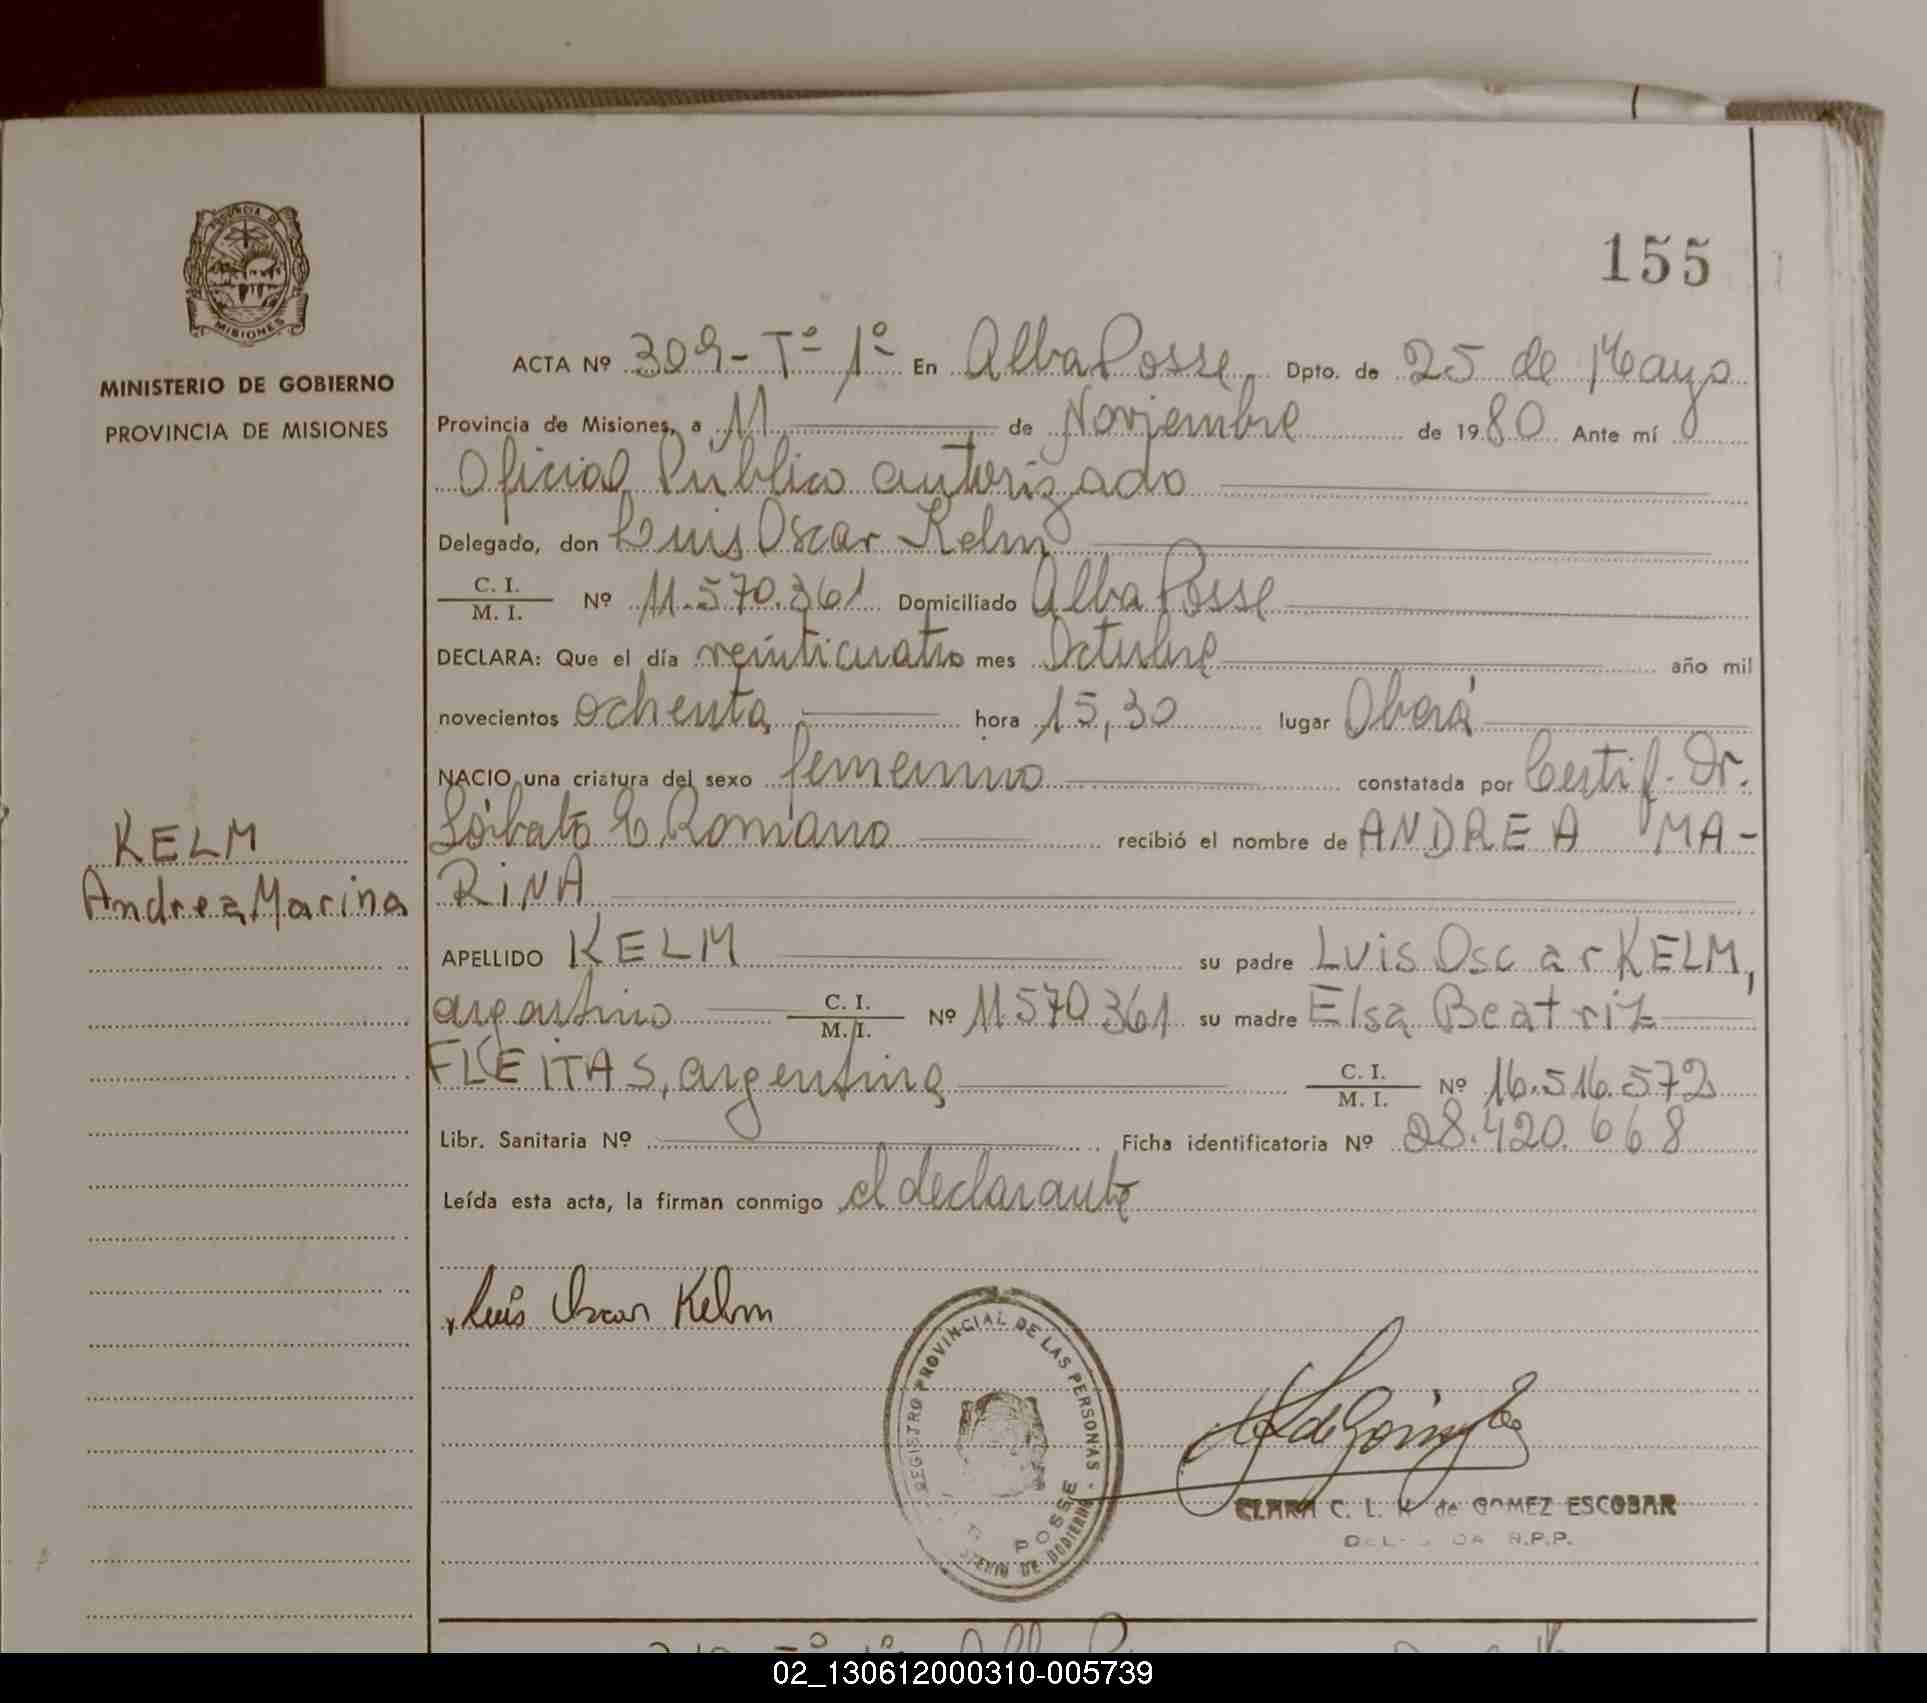 155
MINISTERIO DE GOBIERNO
PROVINCIA DE MISIONES
ACTA Nº 309 - Tº 1º En Alba Posse Dpto. de 25 de Mayo
Provincia de Misiones, a 11 de Noviembre de 1980 Ante mí
Oficial Público autorizado
Delegado, don Luis Oscar Kelm
C. I.
M. I. Nº 11.570.361 Domiciliado Alba Posse
DECLARA: Que el día veinticuatro mes Octubre año mil
novecientos ochenta hora 15,30 lugar Oberá
NACIO una criatura del sexo femenino constatada por Certif. Dr.
Romano recibió el nombre de ANDREA MA-
RINA
KELM
Andrea Marina
APELLIDO KELM su padre Luis Oscar KELM,
argentino C. I. M. I. Nº 11570361 su madre Elsa Beatriz
FLEITAS, argentina C. I. M. I. Nº 16.516.572
Libr. Sanitaria Nº Ficha identificatoria Nº 28.420.668
Leída esta acta, la firman conmigo el declarante
Luis Oscar Kelm
REGISTRO PROVINCIAL DE LAS PERSONAS
POSSE
DE GOBIERNO
CLARA C. L. K. de GOMEZ ESCOBAR
R.P.P.
02_130612000310-005739